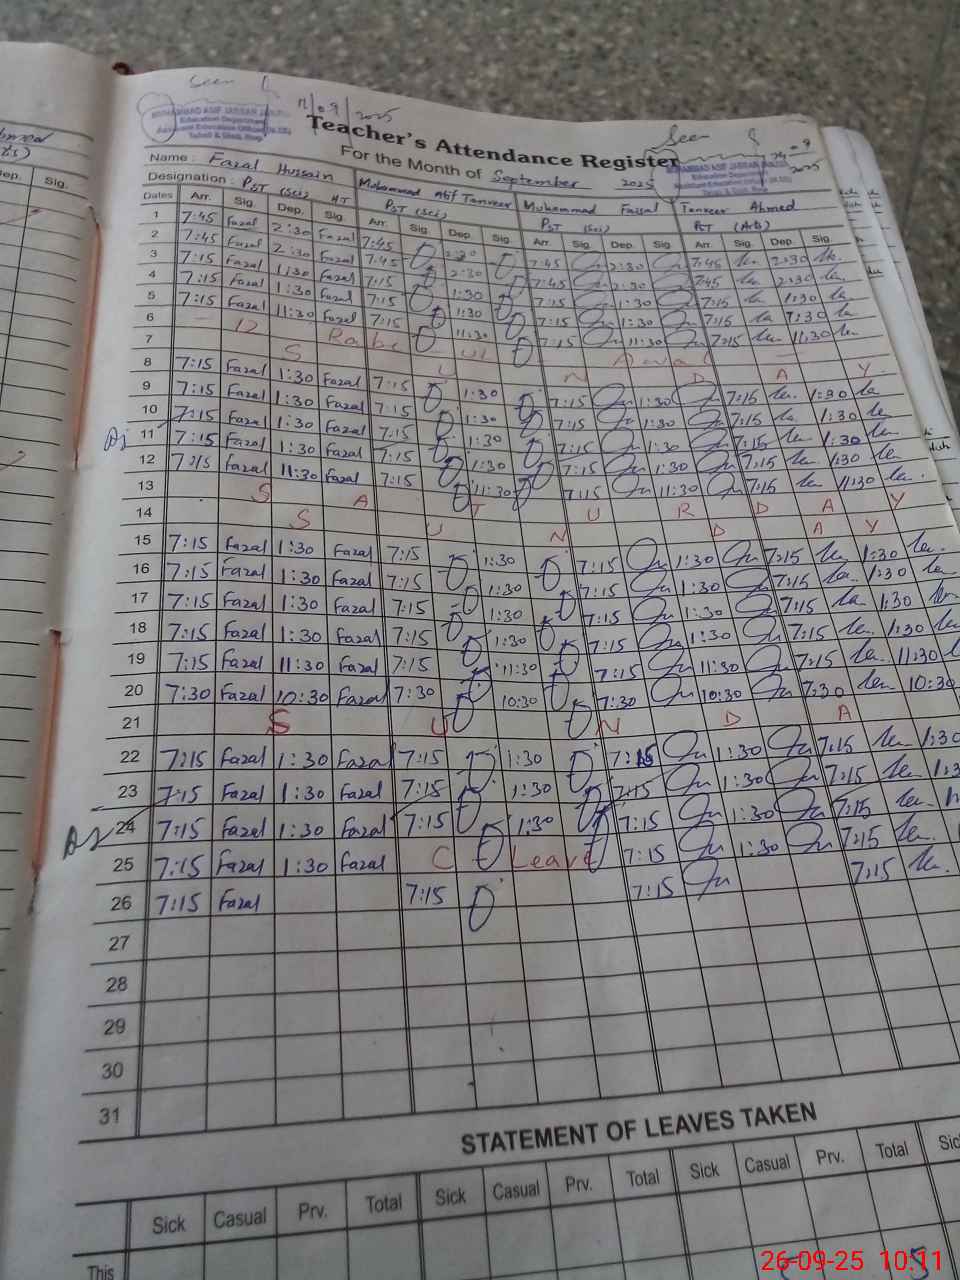 Seen
11/09/2025
MUHAMMAD ASIF
Education Department
Assistant Education Officer
Teacher's Attendance Register
For the Month of September 2025
Seen
24-9
2025
Name: Fazal Hussain Muhammad Atif Tanveer Muhammad Faisal Tanveer Ahmed
Designation: PST (Sci) HT PST (Sci) PST (Sci) PST (Arts)
Dates Arr. Sig. Dep. Sig. Arr. Sig. Dep. Sig. Arr. Sig. Dep. Sig. Arr. Sig. Dep. Sig.
1 7:45 Fazal 2:30 Fazal 7:45 2:30 7:45 2:30 7:45 2:30
2 7:45 Fazal 2:30 Fazal 7:45 2:30 7:45 2:30 7:45 2:30
3 7:15 Fazal 1:30 Fazal 7:15 1:30 7:15 1:30 7:15 1:30
4 7:15 Fazal 1:30 Fazal 7:15 1:30 7:15 1:30 7:15
5 7:15 Fazal 11:30 Fazal 7:15 11:30 7:15 11:30 7:15 11:30
6 12 Rabi ul Awal
7 S U N D A Y
8 7:15 Fazal 1:30 Fazal 7:15 1:30 7:15 1:30 7:15 1:30
9 7:15 Fazal 1:30 Fazal 7:15 1:30 7:15 1:30 7:15 1:30
10 7:15 Fazal 1:30 Fazal 7:15 1:30 7:15 1:30 7:15 1:30
11 7:15 Fazal 1:30 Fazal 7:15 1:30 7:15 1:30 7:15 1:30
12 7:15 Fazal 11:30 Fazal 7:15 11:30 7:15 11:30 7:15 11:30
13 S A T U R D A Y
14 S U N D A Y
15 7:15 Fazal 1:30 Fazal 7:15 1:30 7:15 1:30 7:15 1:30
16 7:15 Fazal 1:30 Fazal 7:15 1:30 7:15 1:30 7:15 1:30
17 7:15 Fazal 1:30 Fazal 7:15 1:30 7:15 1:30 7:15 1:30
18 7:15 Fazal 1:30 Fazal 7:15 1:30 7:15 1:30 7:15 1:30
19 7:15 Fazal 11:30 Fazal 7:15 11:30 7:15 11:30 7:15 11:30
20 7:30 Fazal 10:30 Fazal 7:30 10:30 7:30 10:30 7:30 10:30
21 S U N D A
22 7:15 Fazal 1:30 Fazal 7:15 1:30 7:15 1:30 7:15 1:30
23 7:15 Fazal 1:30 Fazal 7:15 1:30 7:15 1:30 7:15
24 7:15 Fazal 1:30 Fazal 7:15 1:30 7:15 1:30 7:15
25 7:15 Fazal 1:30 Fazal C Leave 7:15 1:30 7:15
26 7:15 Fazal 7:15 7:15 7:15
27
28
29
30
31
STATEMENT OF LEAVES TAKEN
Sick Casual Prv. Total Sick Casual Prv. Total Sick Casual Prv. Total
This
26-09-25 10:11